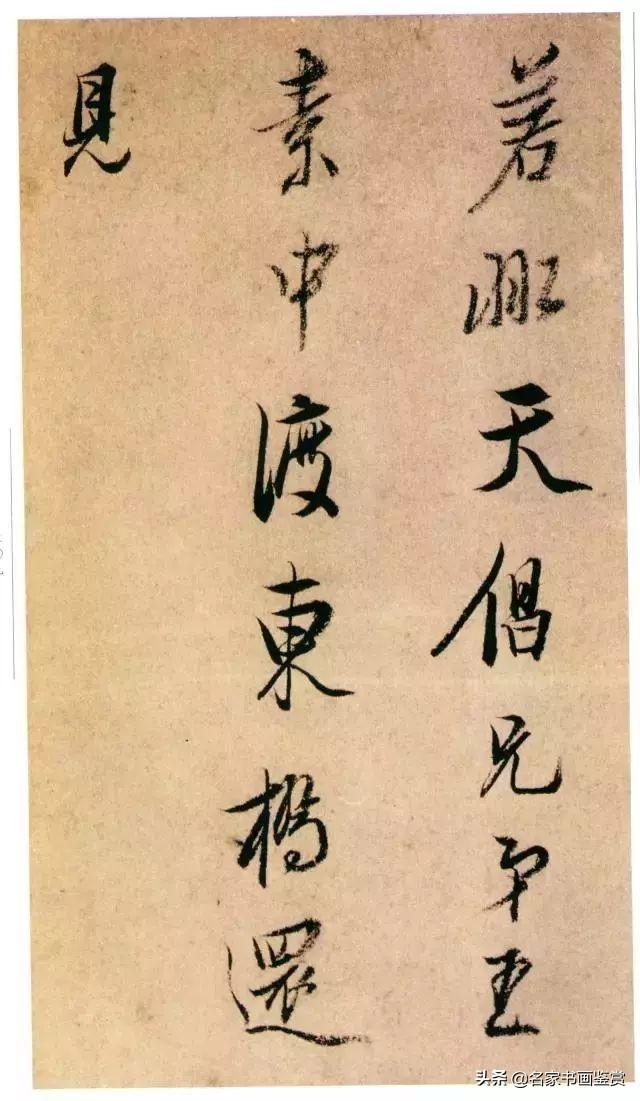 若天倡兄弟王
素中渡東橋還
見
头条 @名家书画鉴赏